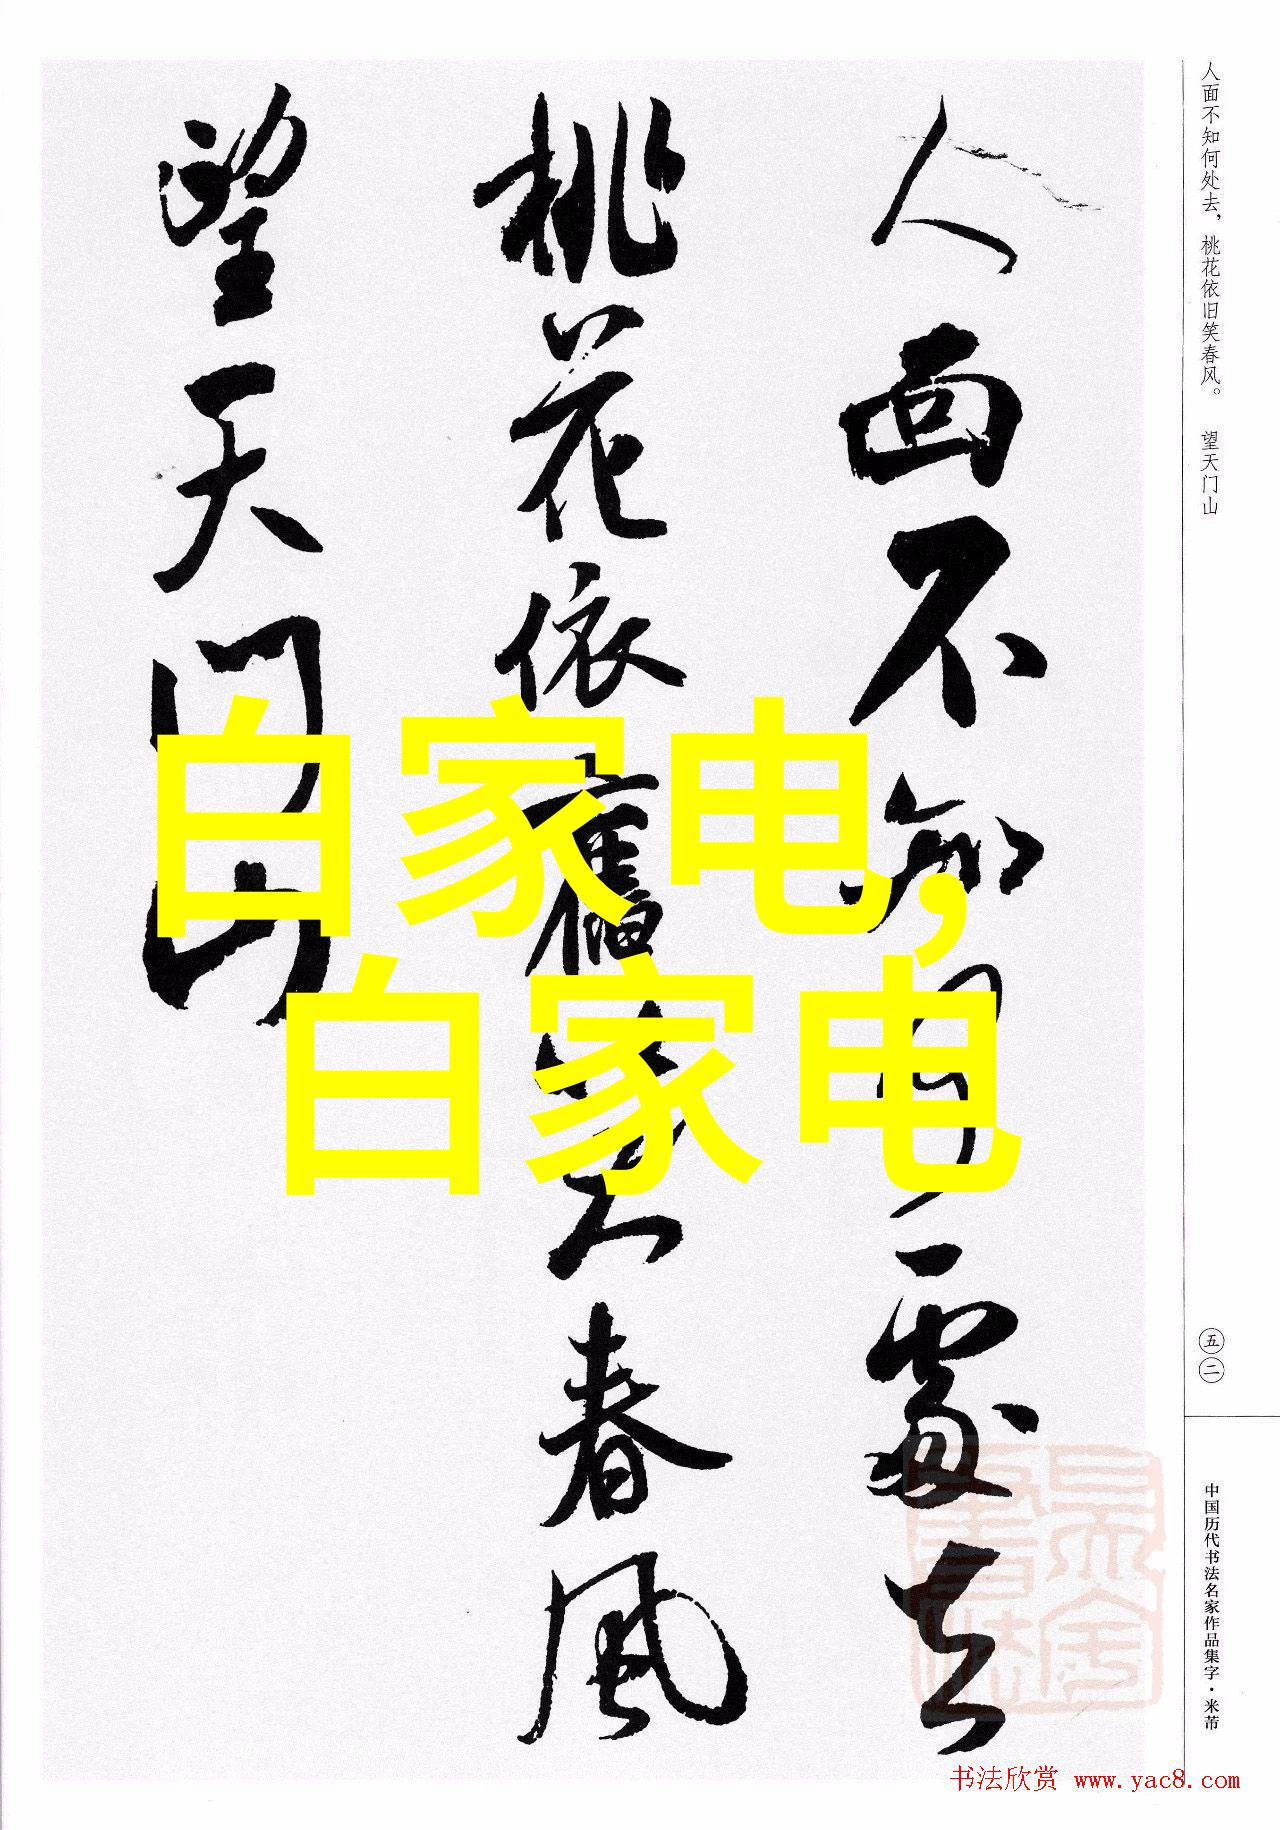 人面不知何處去
桃花依舊笑春風
望天门山
白家电,
白家电
人面不知何处去，桃花依旧笑春风。 望天门山
五二
中国历代书法名家作品集字·米芾
书法欣赏 www.yac8.com